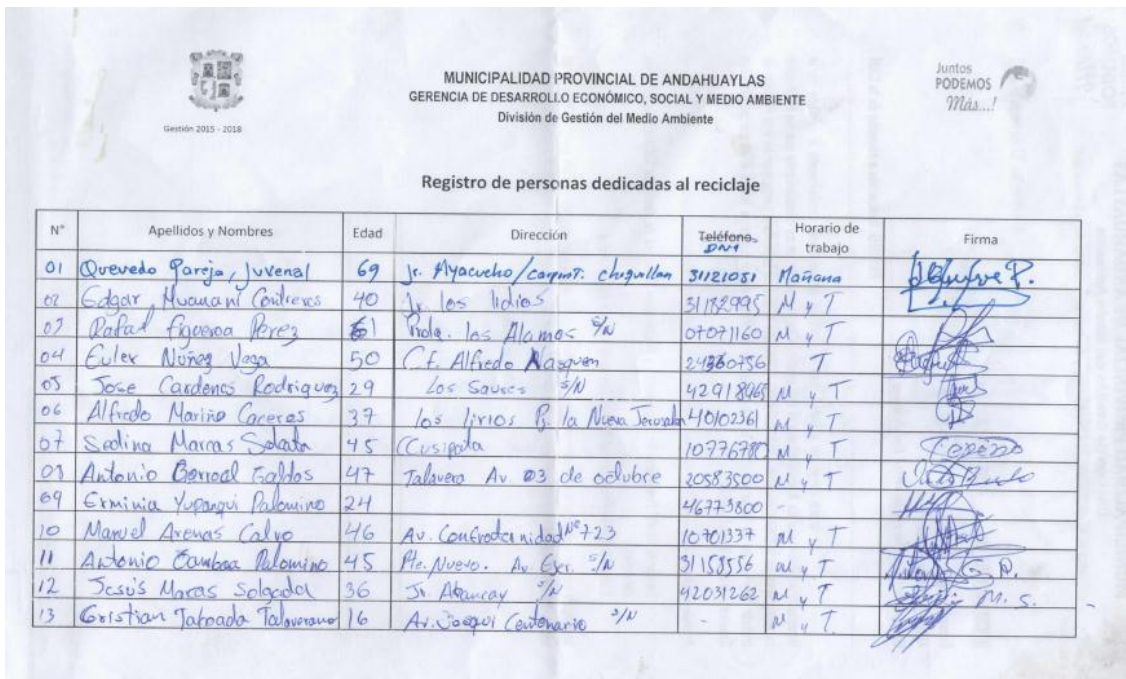 MUNICIPALIDAD PROVINCIAL DE ANDAHUAYLAS
GERENCIA DE DESARROLLO ECONÓMICO, SOCIAL Y MEDIO AMBIENTE
División de Gestión del Medio Ambiente
Gestión 2015 - 2018
Juntos
PODEMOS
Más...!
Registro de personas dedicadas al reciclaje
N° Apellidos y Nombres Edad Dirección Teléfono DNI Horario de trabajo Firma
01 Quevedo Pareja, Juvenal 69 Jr. Ayacucho/ 31121051 Mañana
02 Edgar Huamaní Contreras 40 Jr. los lidios M y T
03 Rafael Figueroa Perez 61 Prolg. los Alamos S/N 07071160 M y T
04 Euler Núñez Vega 50 Alfredo T
05 Jose Cardenas Rodriguez 29 Los Sauces S/N M y T
06 Alfredo Mariño Caceres 37 los lirios la Nueva Jerusalen 40102361 M y T
07 Marcas 45 Cusipata M y T
08 Antonio 47 Talavera Av 03 de octubre 20583500 M y T
09 Erminia Yupanqui Palomino 24 46773800 -
10 Manuel Arenas Calvo 46 Av. Confraternidad N° 723 10701337 M y T
11 Antonio Palomino 45 Pte. Nuevo. Av. S/N M y T
12 Jesús 36 Jr. Abancay S/N 42031262 M y T M. S.
13 Talaverano 16 Av. Centenario S/N - M y T.